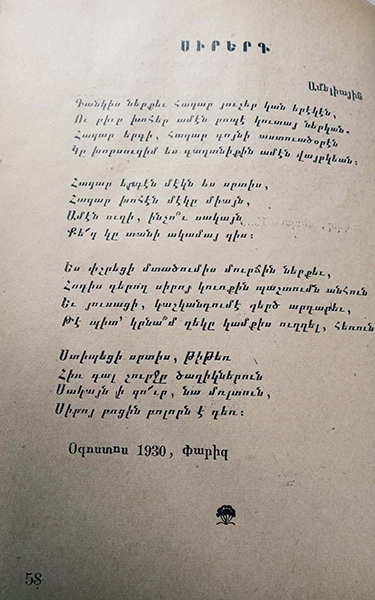 ՍԻՐԵՐԳ
Ամելիային
Գանկիս ներքեւ հազար յուշեր կան երէկէն,
Ու բիւր խոհեր ամէն րոպէ կուտայ ներկան.
Հազար երգի, հազար գոյնի աստուածօրէն
Կը խորասուզիմ ես գաղտնիքին ամէն վայրկեան:
Հազար երգէն մէկն ես սրտիս,
Հազար խոհէն մէկը միայն,
Ամէն ուղի, ինչո՞ւ սակայն
Քե՛զ կը տանի ակամայ զիս:
Ես փշրեցի մտածումիս մուրճին ներքեւ,
Հոգիս գերող սիրոյ կուռքին պաշտումն անհուն
Եւ յուսացի, կաշկանդումէ զերծ արդարեւ,
Թէ պիտ՝ կրնա՛մ ղեկը կամքիս ուղղել, հեռուն
Ստիպեցի սրտիս, թիթեռ
Հիւ գալ շուրջը ծաղիկներուն
Սակայն ի զո՜ւր, նա մոլտուն,
Սիրոյ բոցին բոլորն է դեռ:
Օգոստոս 1930, Փարիզ
58